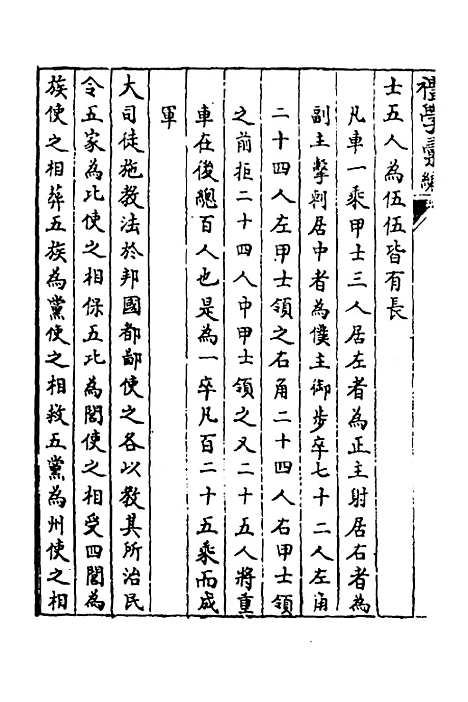 禮學彙編
士五人為伍伍皆有長
凡車一乘甲士三人居左者為正主射居右者為
副主擊刺居中者為僕主御步卒七十二人左角
二十四人左甲士領之右角二十四人右甲士領
之前拒二十四人中甲士領之又二十五人將重
車在後總百人也是為一卒凡百二十五乘而成
軍
大司徒施教法於邦國都鄙使之各以教其所治民
令五家為比使之相保五比為閭使之相受四閭為
族使之相葬五族為黨使之相救五黨為州使之相